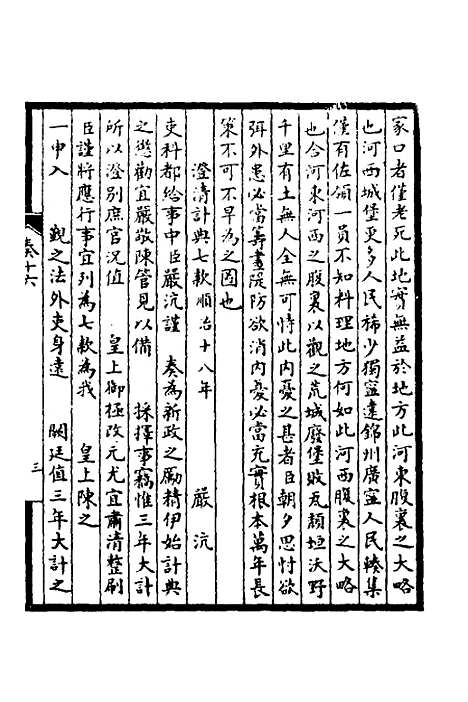 家口者僅老死此地實無益於地方此河東腹裏之大略
也河西城堡更多人民稀少獨寧遠錦州廣寧人民輳集
僅有佐領一員不知料理地方何如此河西腹裏之大略
也合河東河西之腹裏以觀之荒城廢堡敗瓦頹垣沃野
千里有土無人全無可恃此內憂之甚者臣朝夕思忖欲
弭外患必當籌畫隄防欲消內憂必當充實根本萬年長
策不可不早為之圖也
澄清計典七款順治十八年 嚴沆
吏科都給事中臣嚴沆謹 奏為新政之勵精伊始計典
之懲勸宜嚴敬陳管見以備 採擇事竊惟三年大計
所以澄別庶官況值 皇上御極改元尤宜肅清整刷
臣謹將應行事宜列為七款為我 皇上陳之
一申入 覲之法外吏身遠 闕廷值三年大計之
奏十六 三